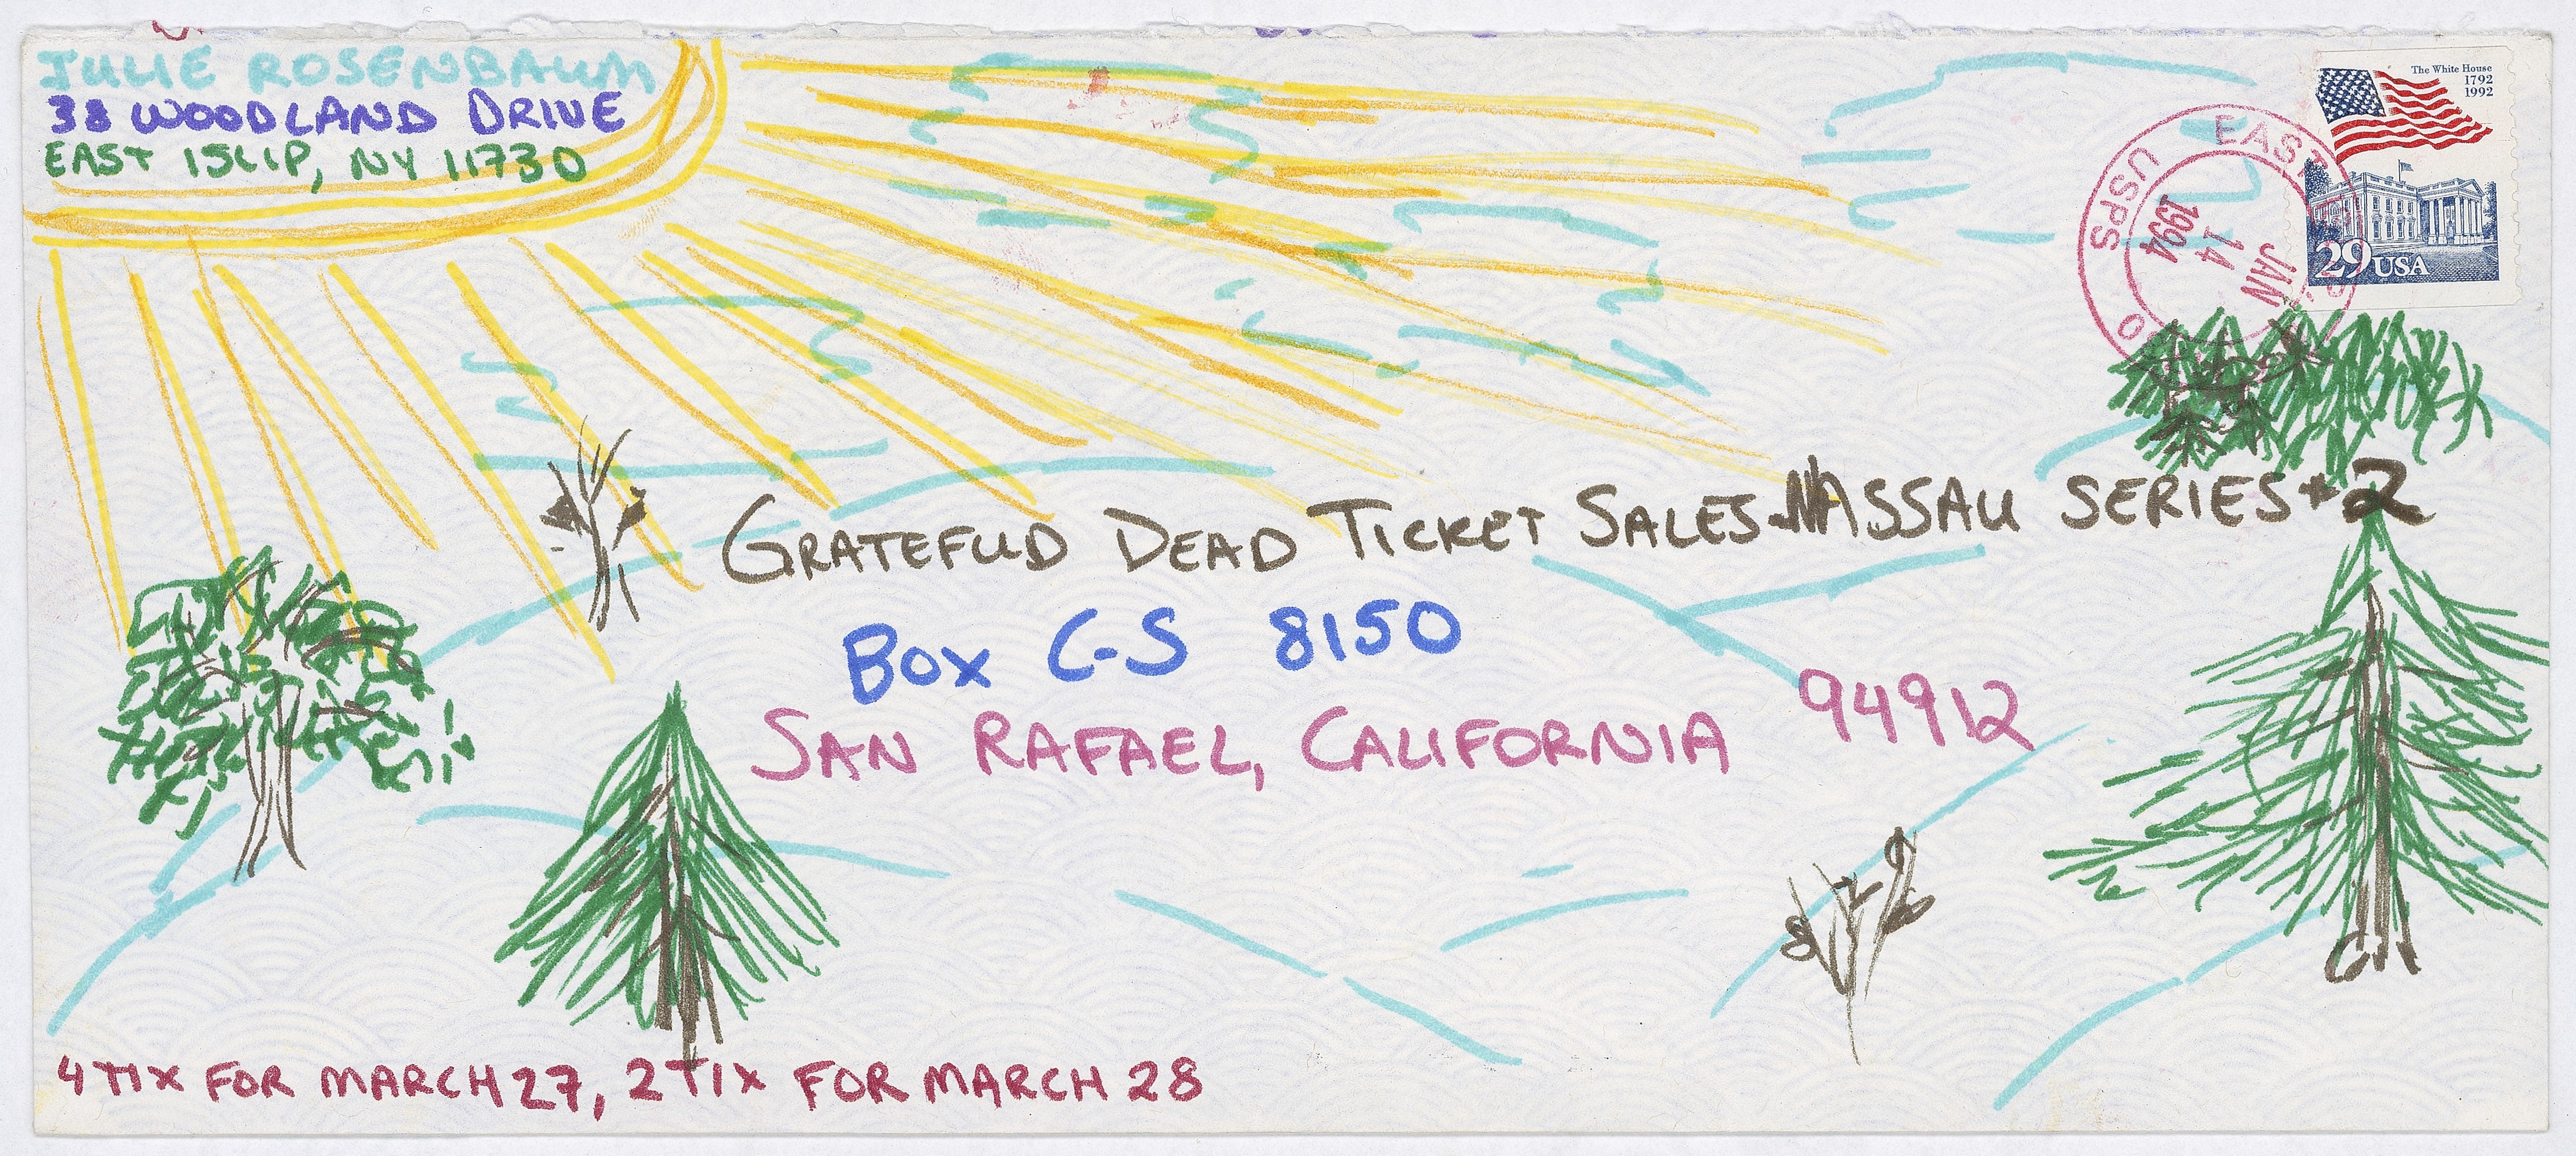 JULIE ROSENBAUM
38 WOODLAND DRIVE
EAST ISLIP, NY 11730
The White House
1792
1992
29 USA
EAST
USPS
JAN
14
1994
GRATEFUL DEAD TICKET SALES-NASSAU SERIES #2
BOX C-S 8150
SAN RAFAEL, CALIFORNIA 94912
4 TIX FOR MARCH 27, 2 TIX FOR MARCH 28